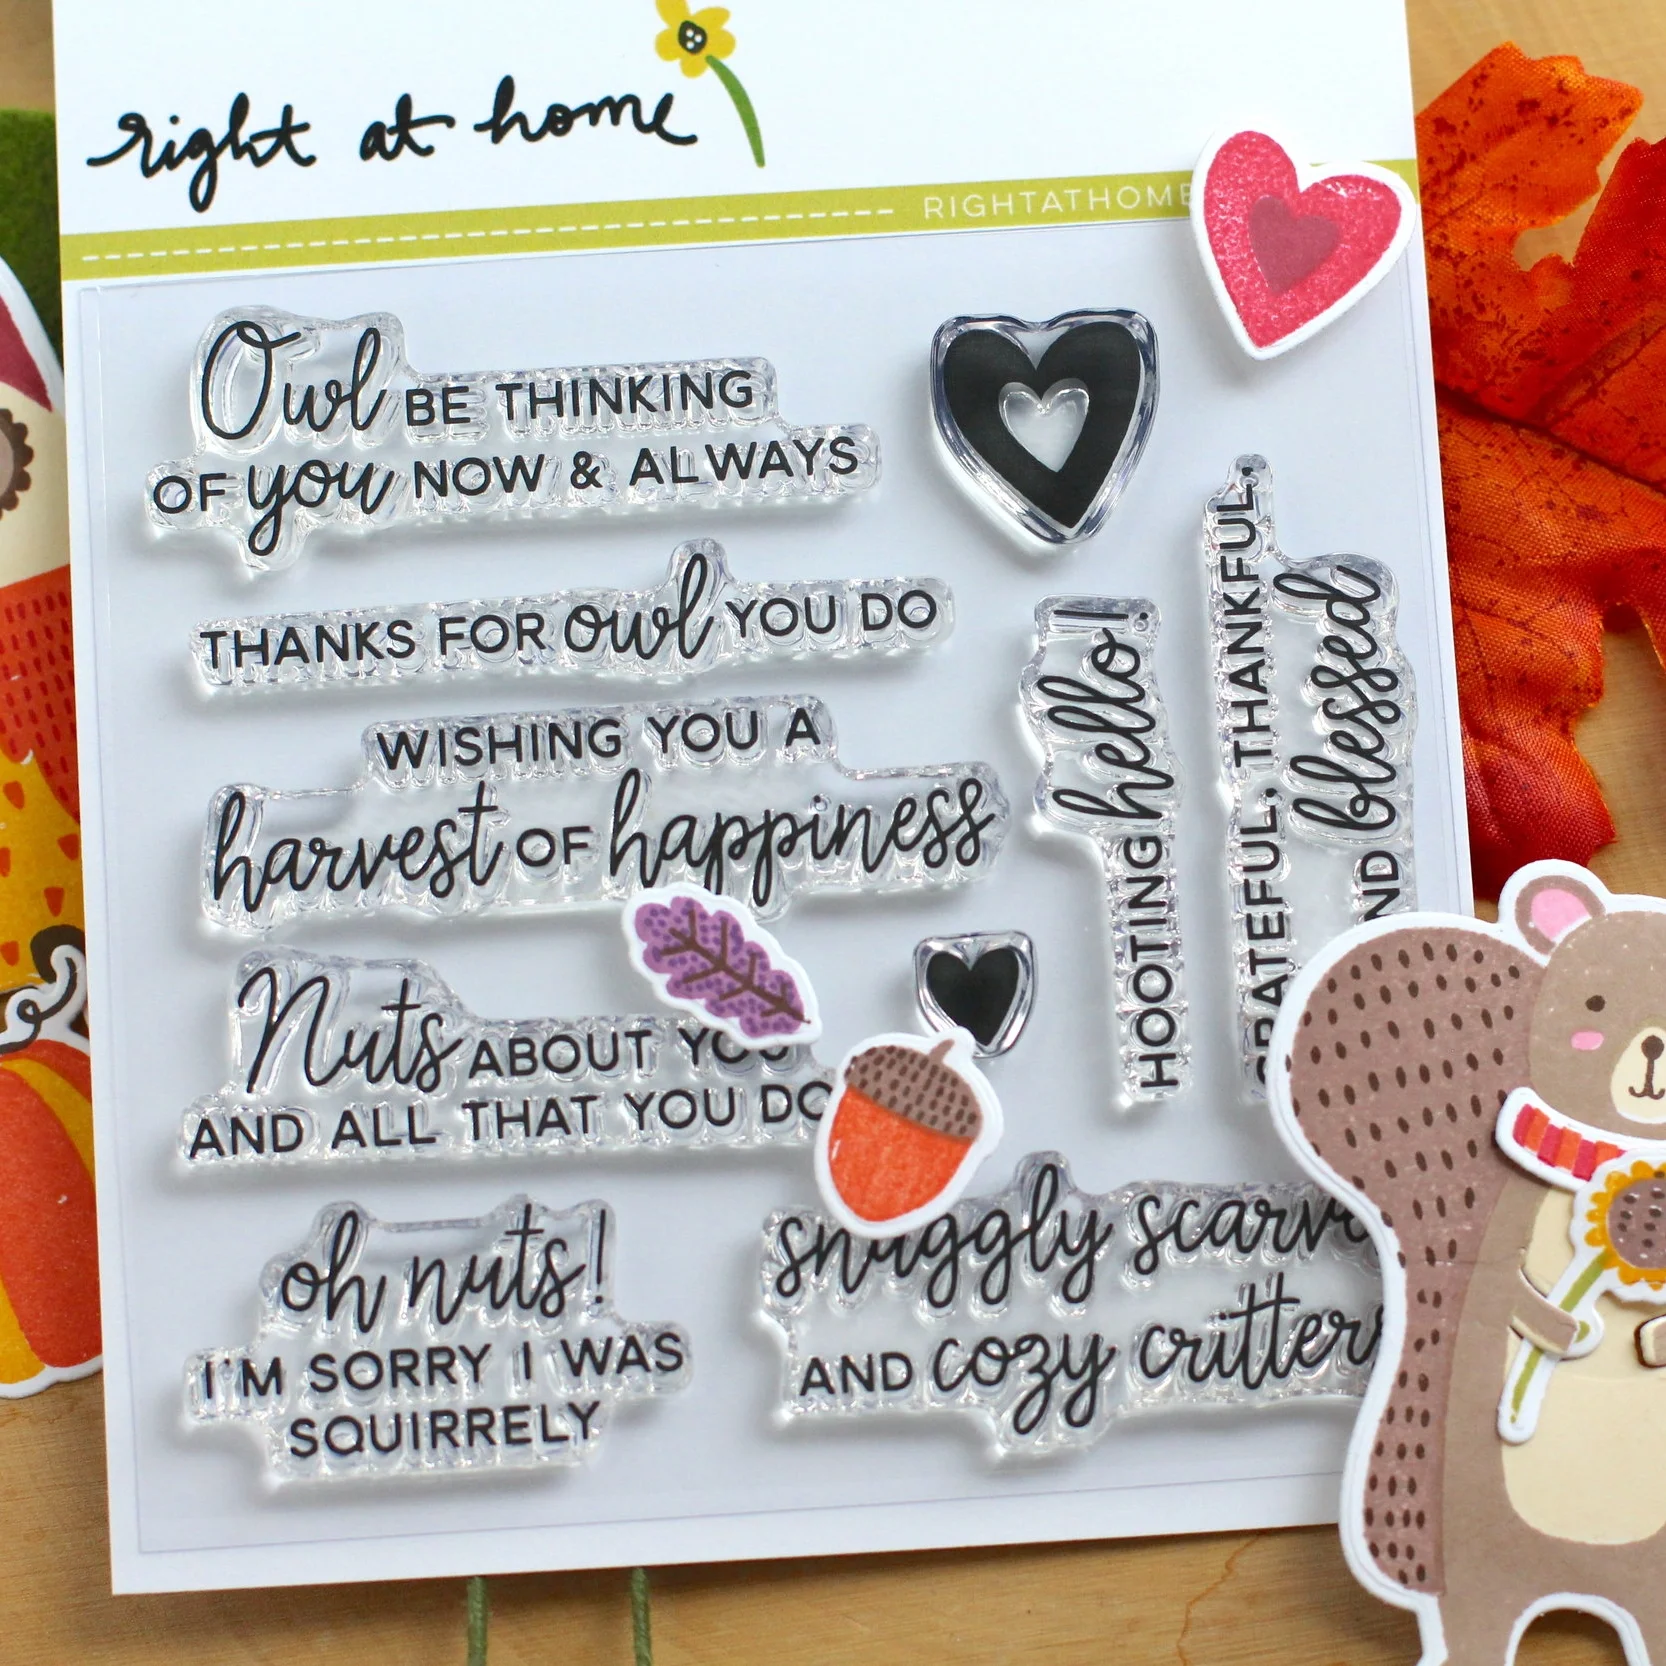 right at home
RIGHTATHOME
Owl BE THINKING
OF you NOW & ALWAYS
THANKS FOR owl YOU DO
WISHING YOU A
harvest OF happiness
Nuts ABOUT YOU
AND ALL THAT YOU DO
oh nuts!
I'M SORRY I WAS
SQUIRRELY
snuggly scarve
AND cozy critters
HOOTING hello!
GRATEFUL, THANKFUL,
AND blessed